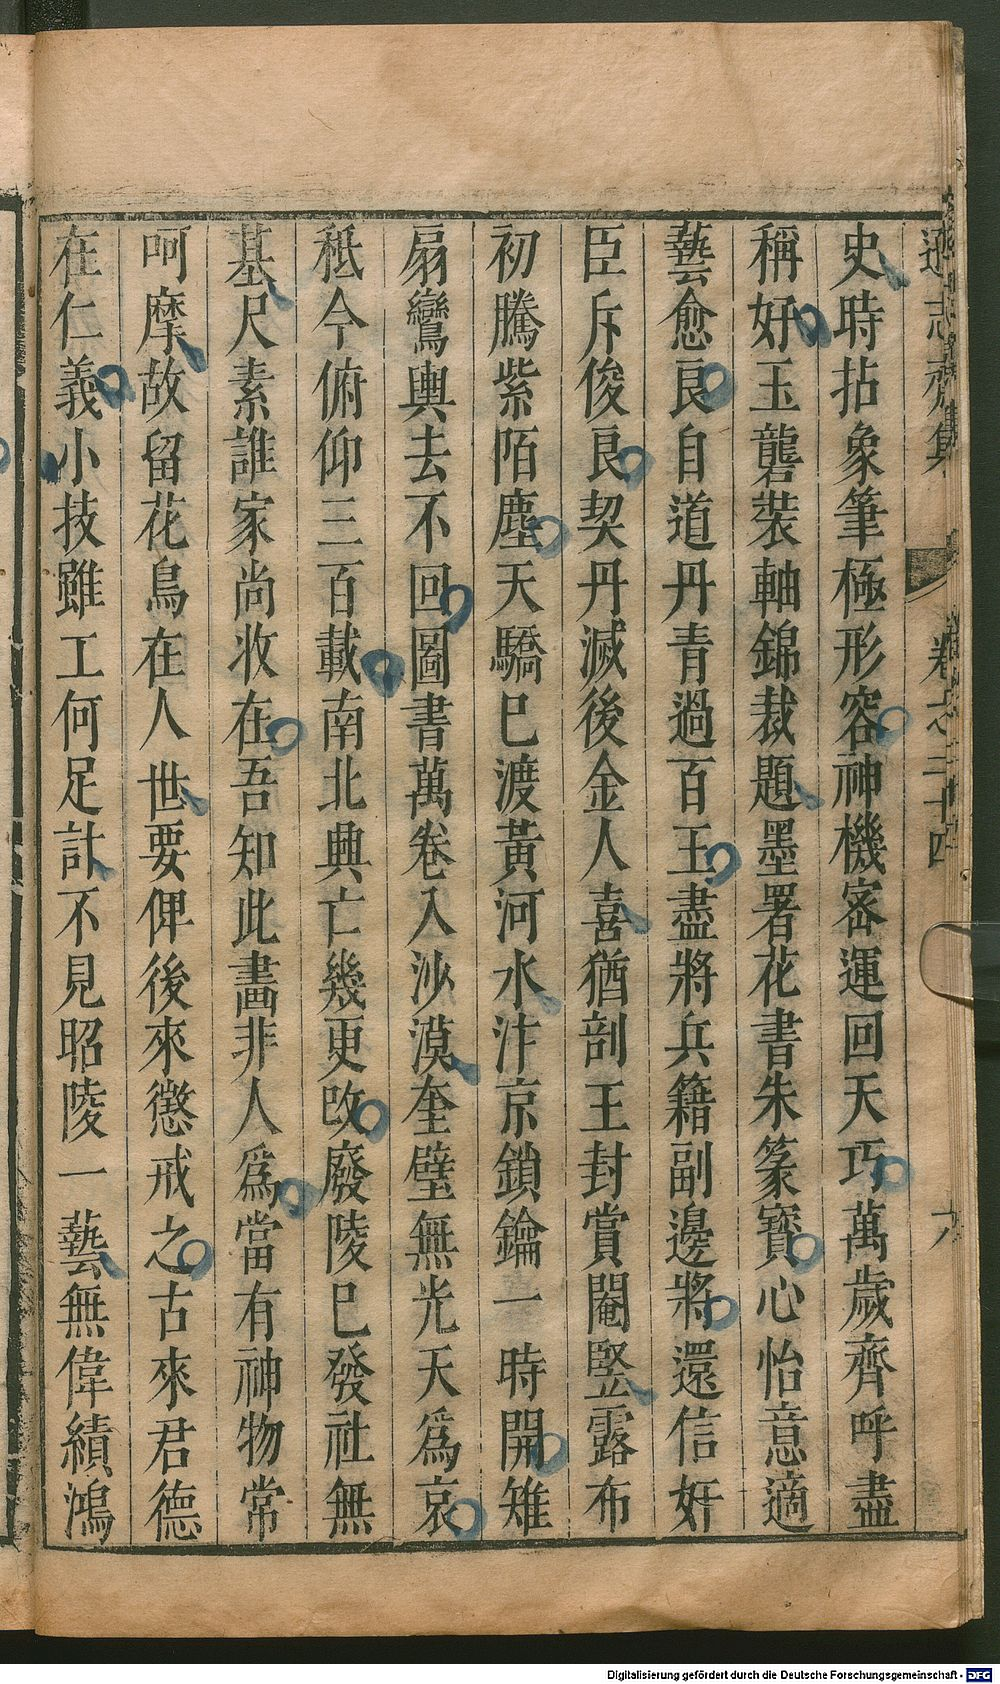 遜志齋集 卷之二十四
史時拈象筆極形容神機密運回天巧萬歲齊呼盡
稱好玉躞裝軸錦裁題墨署花書朱篆寶心怡意適
藝愈良自道丹青過百王盡將兵籍副邊將還信奸
臣斥俊良契丹滅後金人喜猶剖王封賞閹竪露布
初騰紫陌塵天驕已渡黃河水汴京鎖鑰一時開雉
扇鸞輿去不回圖書萬卷入沙漠奎璧無光天爲哀
秪今俯仰三百載南北興亡幾更改廢陵已發社無
基尺素誰家尚收在吾知此畫非人爲當有神物常
呵摩故留花鳥在人世要俾後來懲戒之古來君德
在仁義小技雖工何足計不見昭陵一藝無偉績鴻
Digitalisierung gefördert durch die Deutsche Forschungsgemeinschaft - DFG